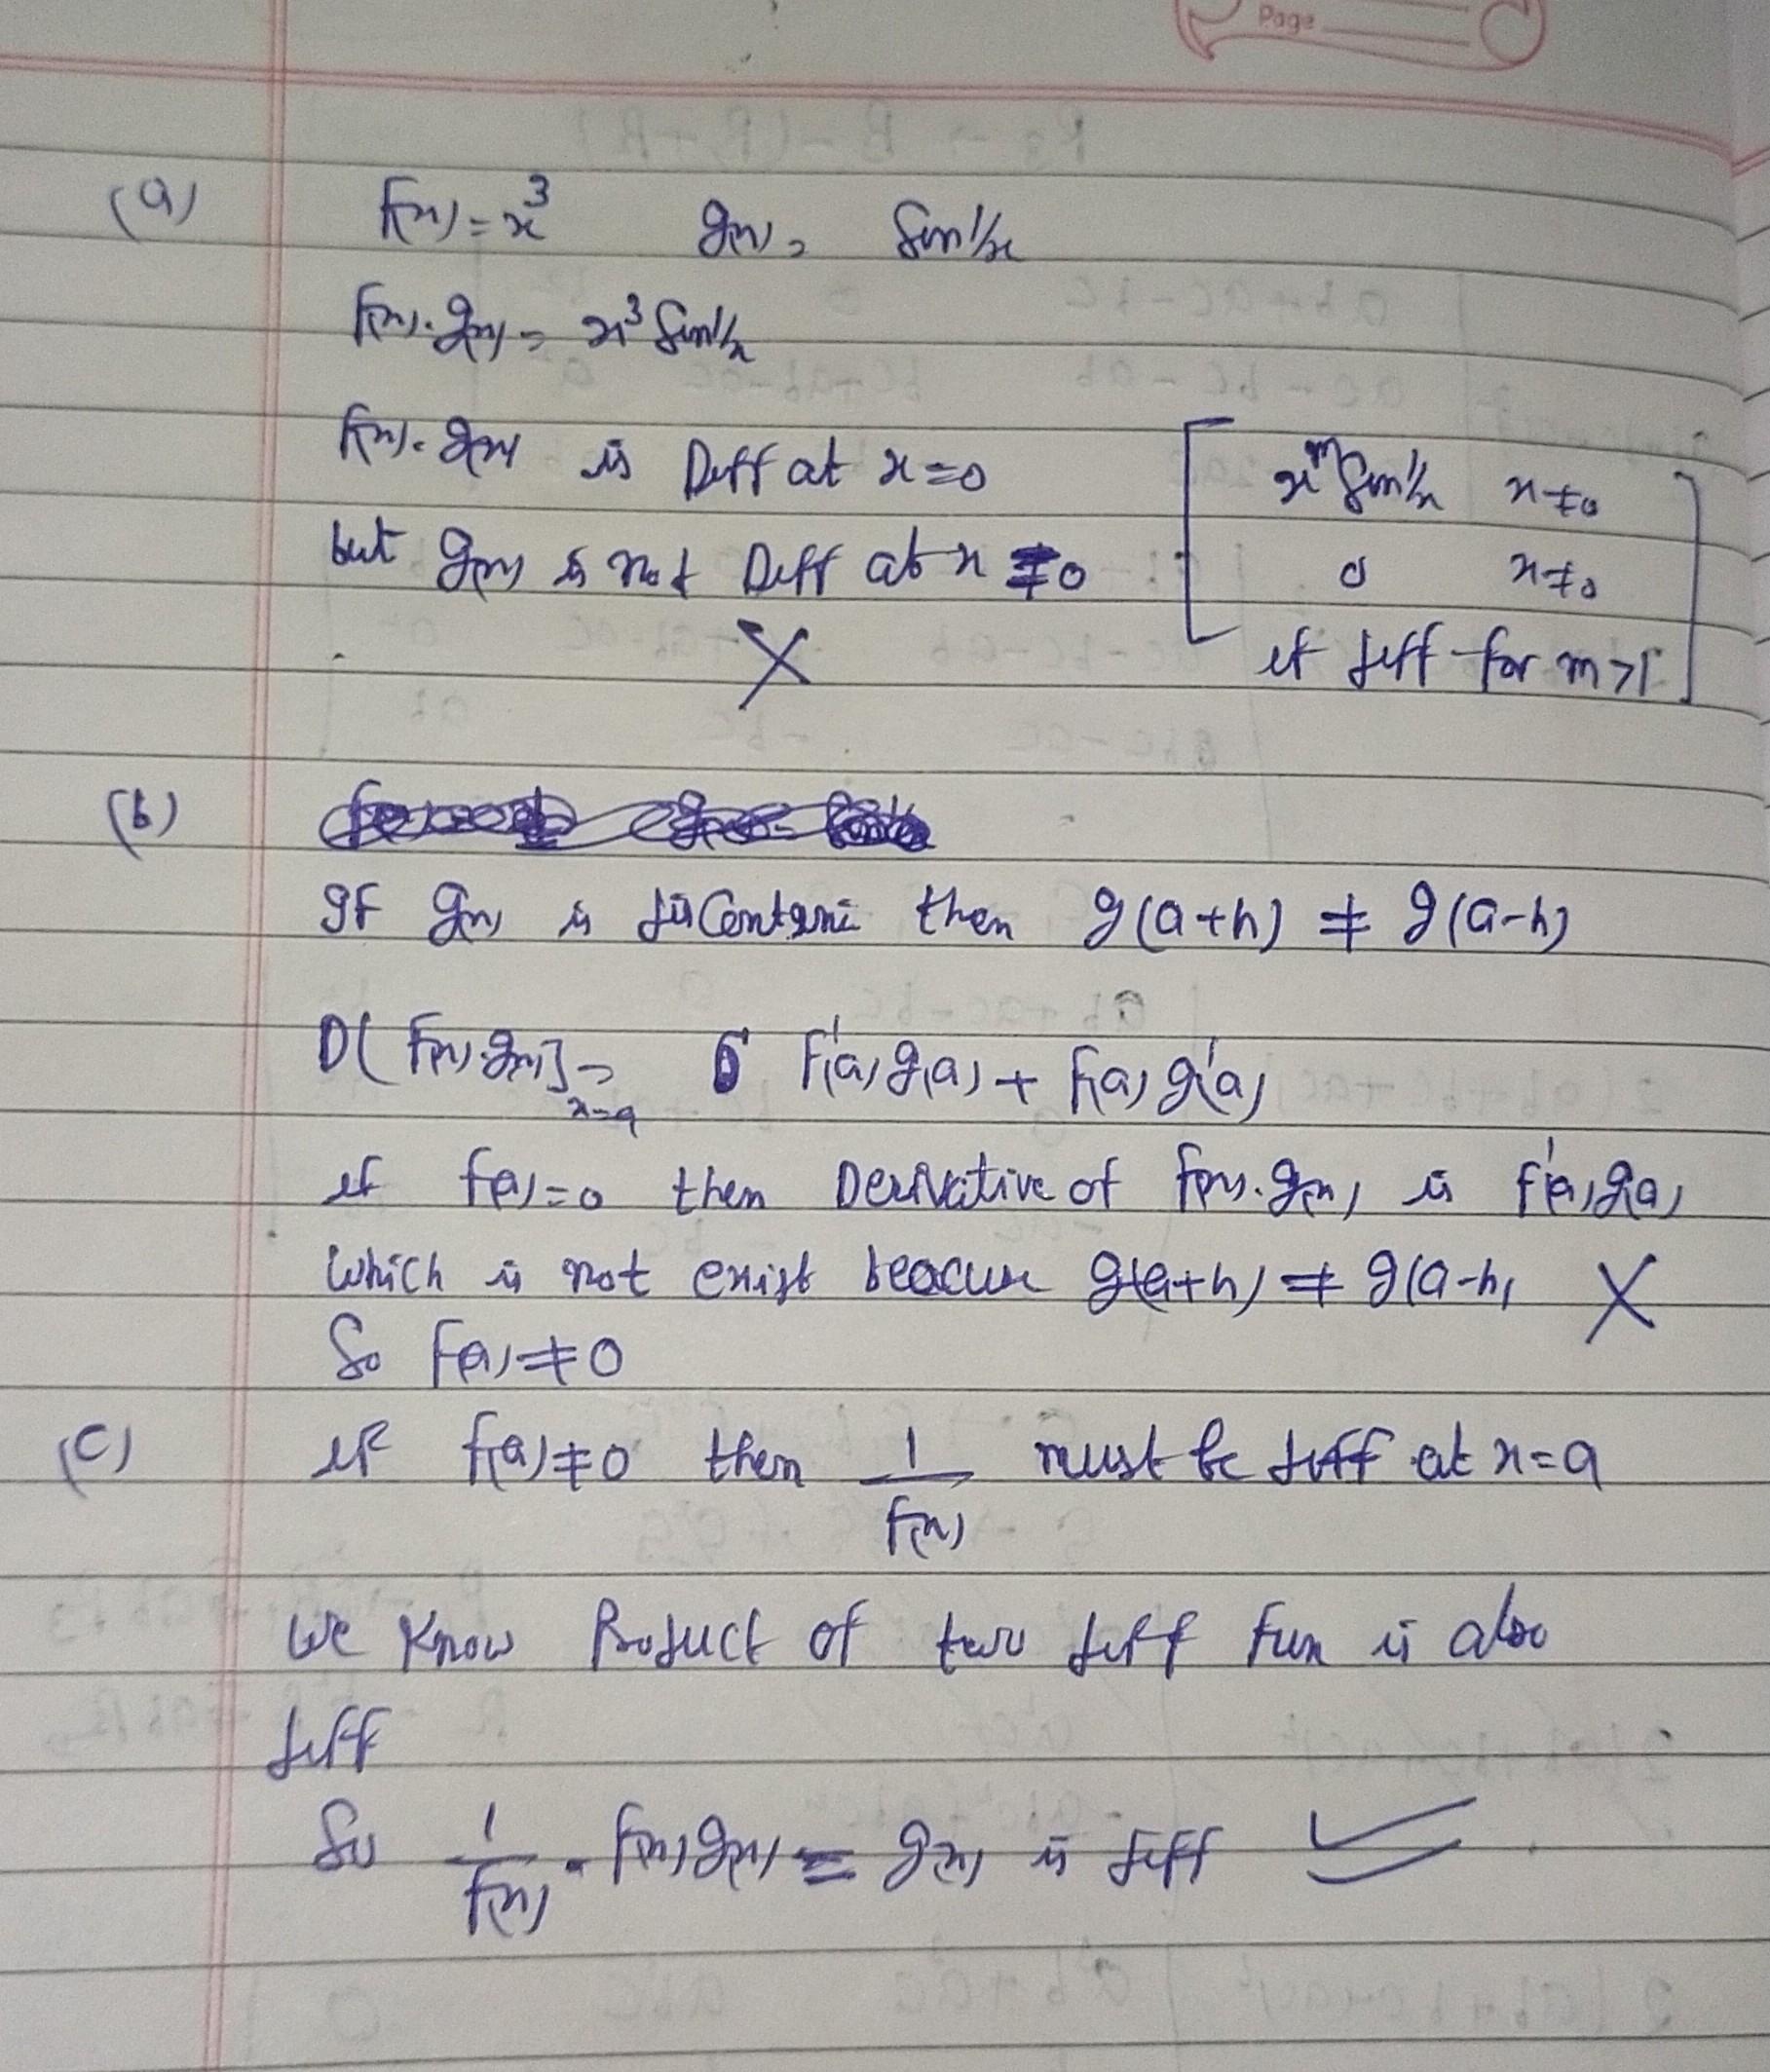 Page
(a) f(x) = x³ g(x) = Sin 1/x
f(x).g(x) = x³ Sin 1/x
f(x).g(x) is Diff at x=0 [ x^m Sin 1/x x≠0
but g(x) is not Diff at x ≠0 0 x≠0
X if diff for m>1 ]
(b)
If g(x) is then g(a+h) ≠ g(a-h)
D[f(x).g(x)]x=a = f'(a)g(a) + f(a)g'(a)
if f(a)=0 then Derivative of f(x).g(x) is f'(a)g(a)
which is not exist g(a+h) ≠ g(a-h) X
So f(a)≠0
(c) if f(a)≠0 then 1/f(x) must be diff at x=a
we know Product of two diff fun is also
diff
So 1/f(x) . f(x)g(x) = g(x) is diff ✓